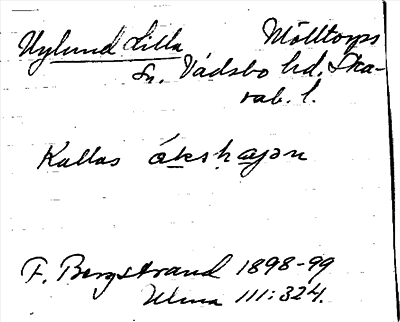 Nylund Lilla Mölltorps
Sn. Vadsbo hd. Ska-
rab. l.
Kallas ókshajən
F. Bergstrand 1898-99
Ulma III:324.